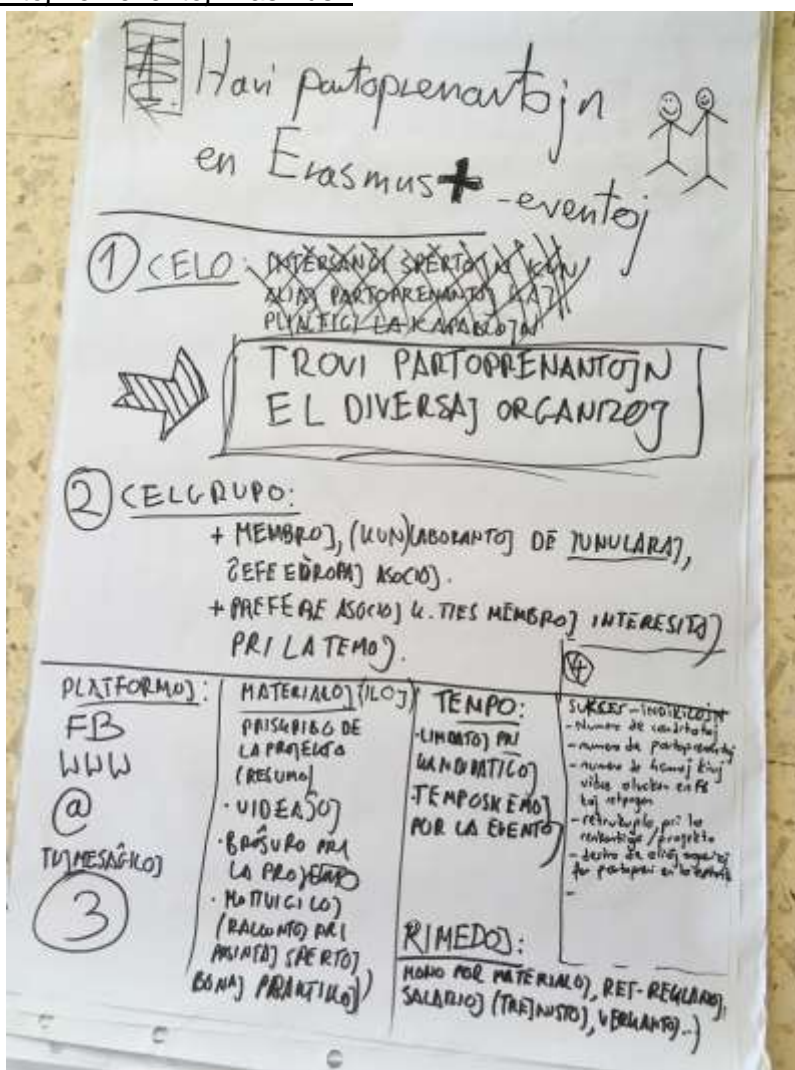 Havi partoprenantojn
en Erasmus+ -eventoj
1 CELO: INTERSANĜI SPERTOJN KUN
ALIAJ PARTOPRENANTOJ KAJ
PLIALTIGI LA KAPABLOJN
TROVI PARTOPRENANTOJN
EL DIVERSAJ ORGANIZOJ
2 CELGRUPO:
+ MEMBROJ, (KUN)LABORANTOJ DE JUNULARAJ,
ĈEFE EŬROPAJ ASOCIOJ.
+ PREFERE ASOCIOJ K. TIES MEMBROJ INTERESITAJ
PRI LA TEMOJ.
PLATFORMOJ:
FB
WWW
@
TUJMESAĜILOJ
3
MATERIALOJ (ILOJ)
PRISKRIBO DE
LA PROJEKTO
(RESUMO)
· VIDEAĴOJ
· BROŜURO PRI
LA PROJEKTO
· MOTIVIGILOJ
(RAKONTOJ PRI
PASINTAJ SPERTOJ,
BONAJ PRAKTIKOJ)
TEMPO:
· LIMDATOJ PRI
KANDIDATIĜO
· TEMPOSKEMOJ
POR LA EVENTO
RIMEDOJ:
MONO POR MATERIALOJ, RET-REKLAMOJ,
SALARIOJ (TREJNISTO, VERKANTOJ...)
4
SUKCES-INDIKILOJN
- Numero de kandidatoj
- numero de partoprenantoj
- numero de homoj kiuj
vidas afiŝon en FB
kaj retpaĝon
- retrokuplo pri la
renkontiĝo/projekto
-